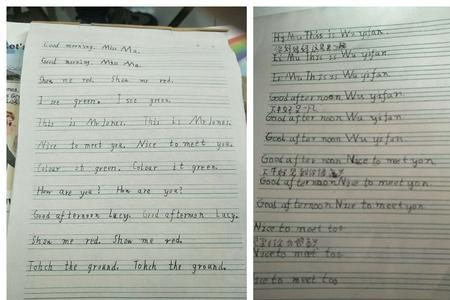 Good morning. Miss Ma.
Good morning. Miss Ma.
Show me red. Show me red.
I see green. I see green.
This is Mr Jones. This is Mr Jones.
Nice to meet you. Nice to meet you.
Colour it green. Colour it green.
How are you? How are you?
Good afternoon Lucy. Good afternoon Lucy.
Show me red. Show me red.
Tohch the ground. Tohch the ground.
Mu This is Wu yifan.
Mu This is Wu yifan.
Mu This is Wu yifan.
Good after noon Wu yifan.
Good after noon Wu yifan.
Good after noon Wu yifan.
Good after noon Nice to meet you
Good after noon Nice to meet you
Good after noon Nice to meet you
Nice to meet too
Nice to meet too
ice to meet too